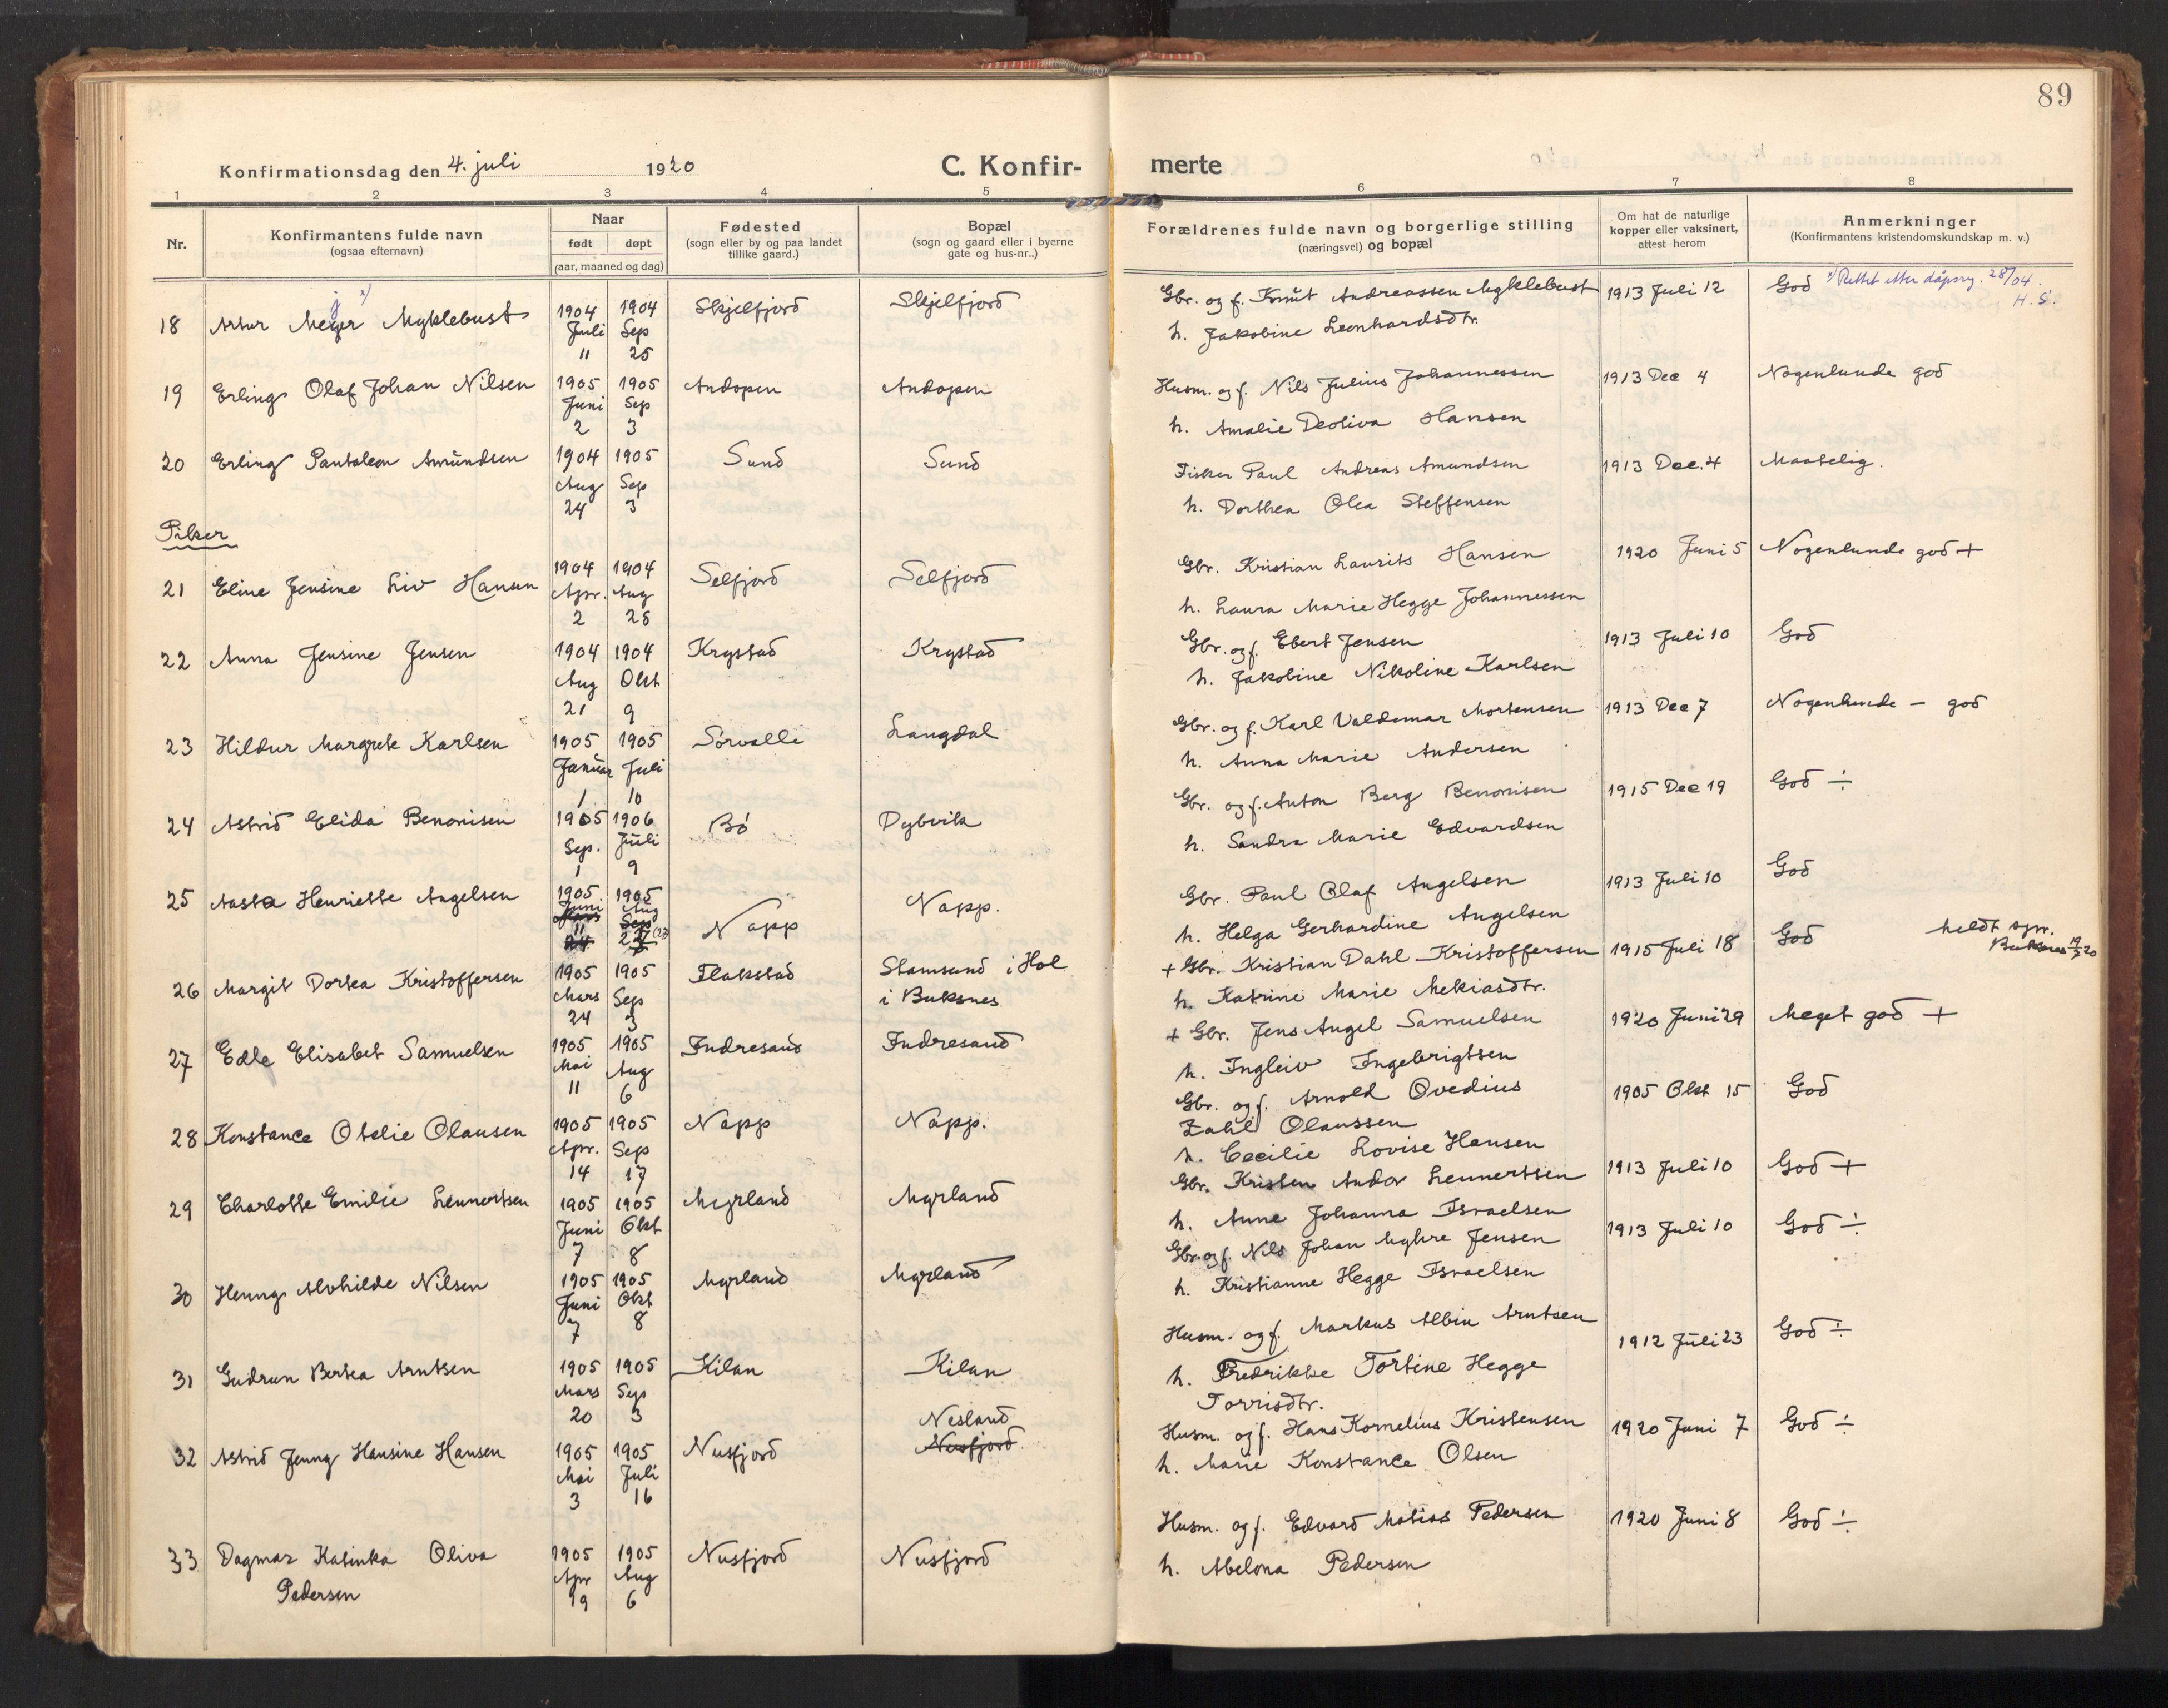 89
Konfirmationsdag den 4. juli 1920 C. Konfir- merte
1 2 3 4 5 6 7 8
Nr.
Konfirmantens fulde navn
(ogsaa efternavn)
Naar
født døpt
(aar, maaned og dag)
Fødested
(sogn eller by og paa landet
tillike gaard.)
Bopæl
(sogn og gaard eller i byerne
gate og hus-nr..)
Forældrenes fulde navn og borgerlige stilling
(næringsvei) og bopæl
Om hat de naturlige
kopper eller vaksinert,
attest herom
Anmerkninger
(Konfirmantens kristendomskundskap m. v.)
j x)
18 Artur Meyer Myklebust 1904 1904 Skjelfjord Skjelfjord Gbr. og f. Knut Andreassen Myklebust 1913 Juli 12 God x) Rettet etter dåpsreg. 28/04.
H. S.
Juli Sep h. Jakobine Leonhardsdtr.
11 25
19 Erling Olaf Johan Nilsen 1905 1905 Andopen Andopen Husm. og f. Nils Julius Johannessen 1913 Dec 4 Nogenlunde god
Juni Sep h. Amalie Deoliva Hansen
2 3
20 Erling Pantaleon Amundsen 1904 1905 Sund Sund Fisker Paul Andreas Amundsen 1913 Dec. 4 Maatelig.
Aug Sep h. Dorthea Olea Steffensen
24 3
Piker
21 Eline Jensine Liv Hansen 1904 1904 Selfjord Selfjord Gbr. Kristian Laurits Hansen 1920 Juni 5 Nogenlunde god +
Apr. Aug h. Laura Marie Hegge Johannessen
2 28
22 Anna Jensine Jensen 1904 1904 Krystad Krystad Gbr. og f. Ebert Jensen 1913 Juli 10 God
Aug Okt h. Jakobine Nikoline Karlsen
21 9
23 Hildur Margrete Karlsen 1905 1905 Sørvalle Langdal Gbr. og f. Karl Valdemar Mortensen 1913 Dec 7 Nogenlunde - god
Januar Juli h. Anna Marie Andersen
1 10
24 Astrid Elida Benonisen 1905 1906 Bø Dybvik Gbr. og f. Anton Berg Benonisen 1915 Dec 19 God ÷
Sep. Juli h. Sandra Marie Edvardsen
1 9
25 Aasta Henriette Angelsen 1905 1905 Napp Napp. Gbr. Paul Olaf Angelsen 1913 Juli 10 God
Juni Aug h. Helga Gerhardine Angelsen
Mars Sep
11 27
24 3
26 Margit Dortea Kristoffersen 1905 1905 Flakstad Stamsund i Hol + Gbr. Kristian Dahl Kristoffersen 1915 Juli 18 God meldt spr.
Buksnes
Mars Sep i Buksnes h. Katrine Marie Mekiasdtr.
24 3
27 Edle Elisabet Samuelsen 1905 1905 Indresand Indresand + Gbr. Jens Angel Samuelsen 1920 Juni 29 Meget god +
Mai Aug h. Ingleiv Ingebrigtsen
11 6
28 Konstance Otelie Olausen 1905 1905 Napp Napp. Gbr. og f. Arnold Ovedius 1905 Okt 15 God
Zahl Olaussen
Apr. Sep h. Cecilie Lovise Hansen
14 17
29 Charlotte Emilie Lennertsen 1905 1905 Myrland Myrland Gbr. Kristen Andor Lennertsen 1913 Juli 10 God +
Juni Okt h. Anne Johanna Israelsen
7 8
30 Henny Alvhilde Nilsen 1905 1905 Myrland Myrland Gbr. og f. Nils Johan Myhre Jensen 1913 Juli 10 God ÷
Juni Okt h. Kristianne Hegge Israelsen
7 8
31 Gudrun Bertea Arntsen 1905 1905 Kilan Kilan Husm. og f. Markus Albin Arntsen 1912 Juli 23 God ÷
Mars Sep h. Fredrikke Tortine Hegge
Torrisdtr.
20 3
32 Astrid Jenny Hansine Hansen 1905 1905 Nusfjord Nesland Husm. og f. Hans Kornelius Kristensen 1920 Juni 7 God ÷
Nusfjord
Mai Juli h. Marie Konstance Olsen
3 16
33 Dagmar Katinka Oliva 1905 1905 Nusfjord Nusfjord Husm. og f. Edvard Matias Pedersen 1920 Juni 8 God ÷
Pedersen Apr Aug h. Abelona Pedersen
19 6